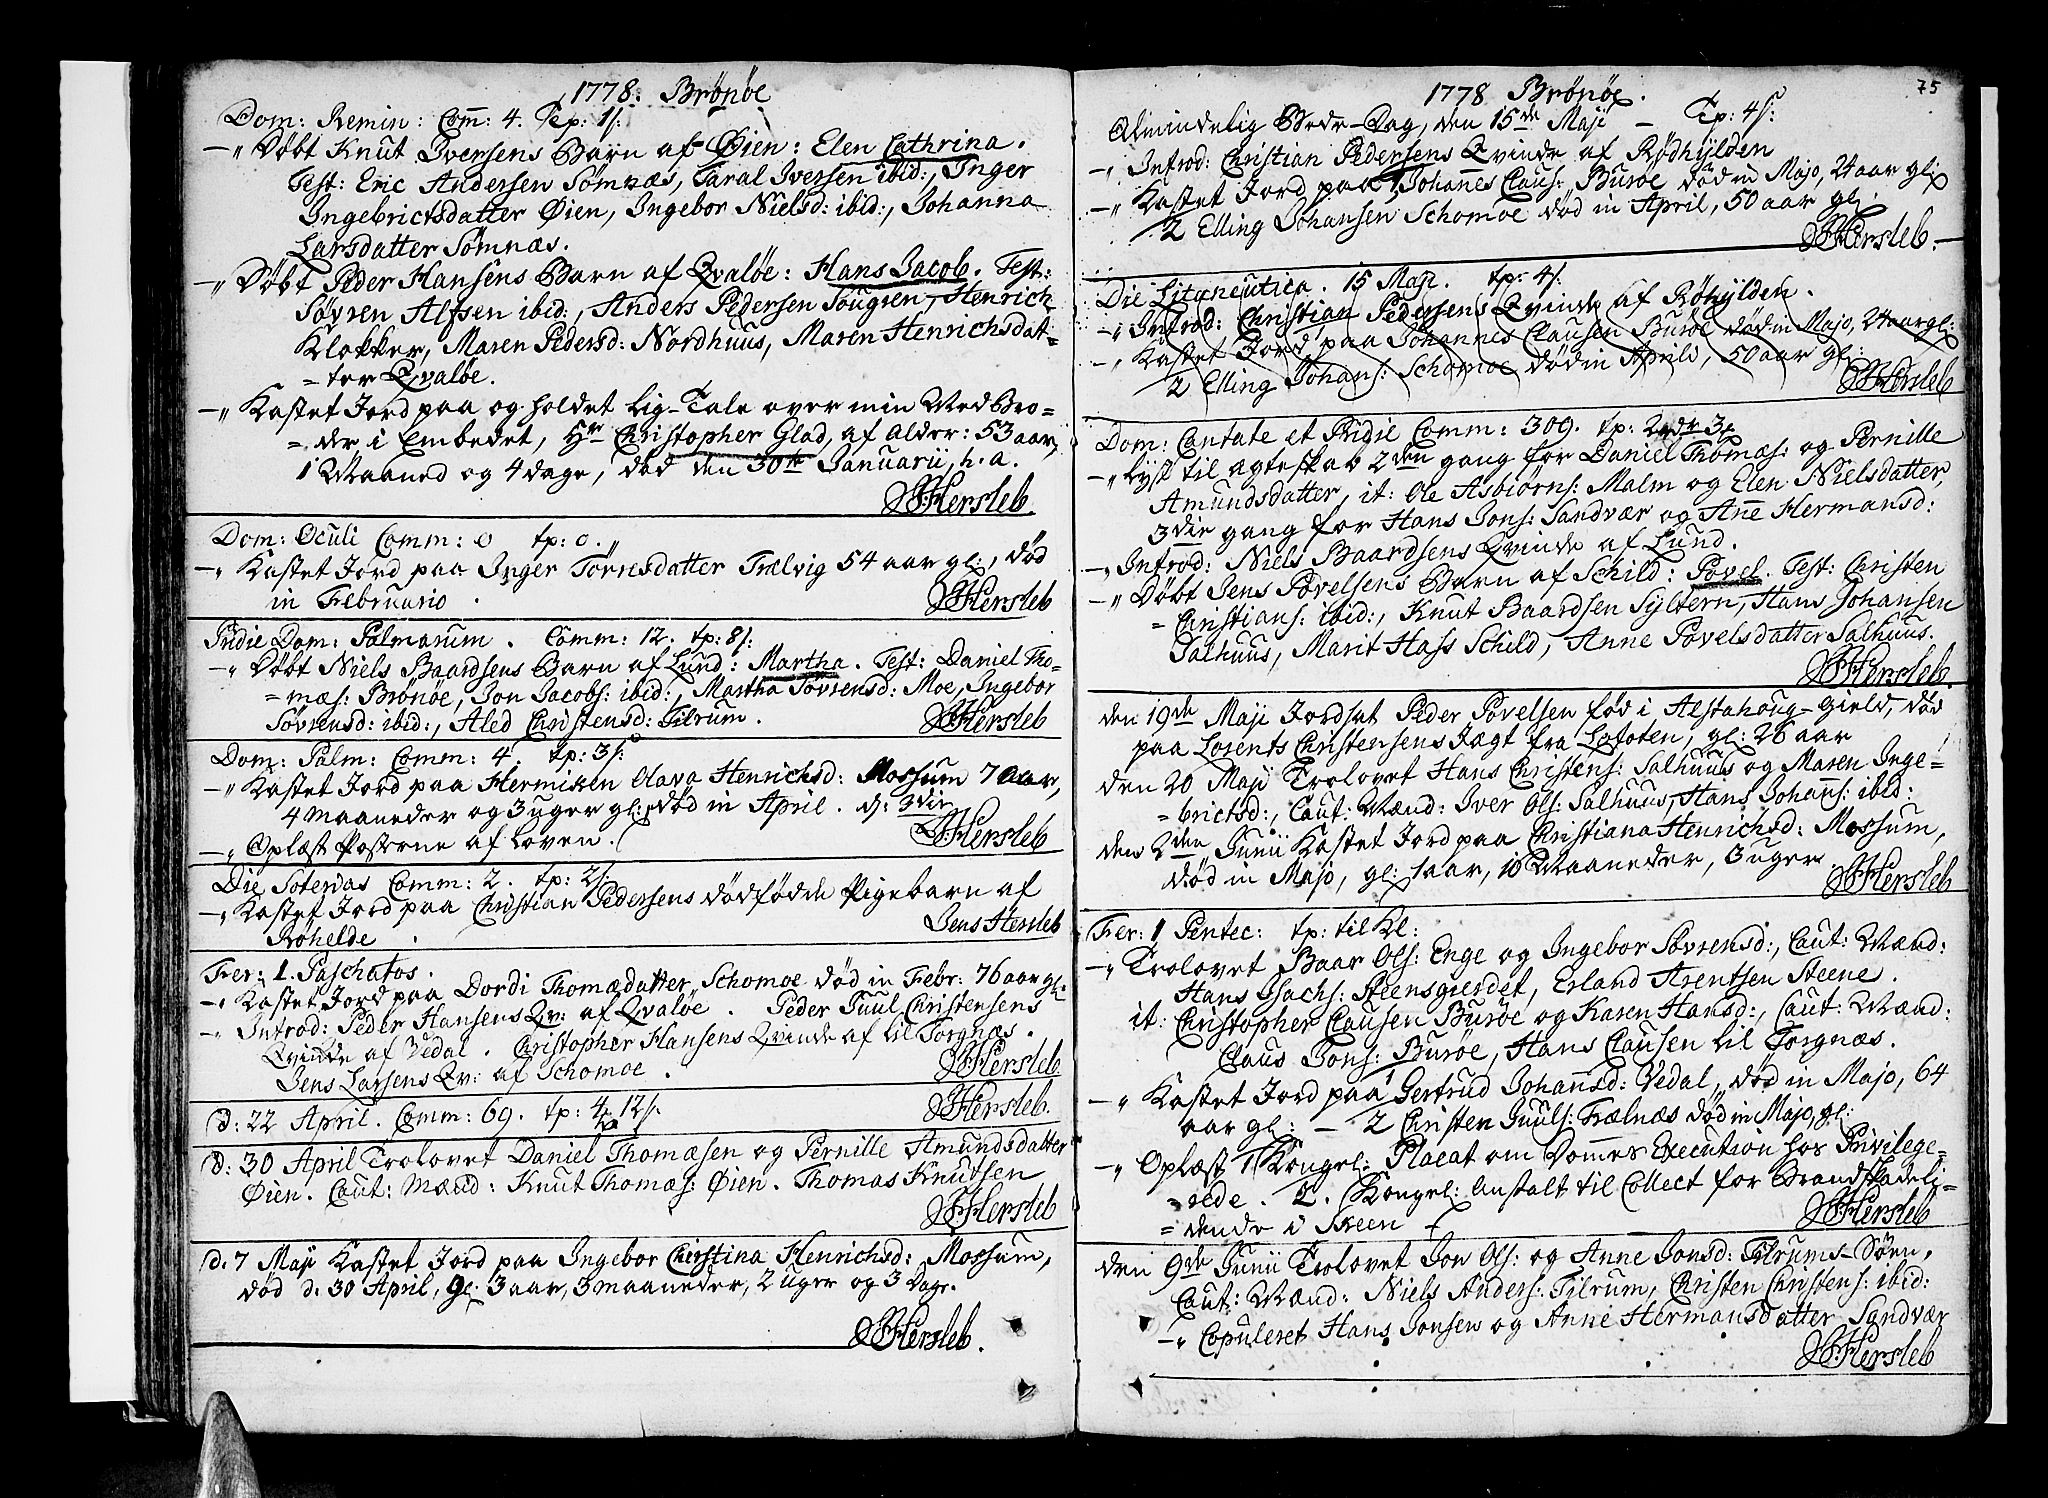 1778. Brønøe
Dom: Remin: Com̄: 4. Tep: 1/:
-" Døbt Knut Iversens Barn af Øien: Elen Cathrina.
Test: Eric Andersen Sømnæs, Taral Iversen ibid:, Inger
Ingebrictsdatter Øien, Ingebor Nielsd: ibid:, Johanna
Larsdatter Sømnæs.
-" Døbt Peder Hansens Barn af Qvaløe: Hans Jacob. Test:
Søvren Alfsen ibid:, Anders Pedersen Sougren, Henrich
Klokker, Maren Pedersd: Nordhuus, Maren Henrichsdat-
= ter Qvaløe.
-" Kastet Jord paa og holdet Lig-Tale over min Med Bro=
= der i Embedet, Hr Christopher Glad, af Alder: 53 aar,
1 Maaned og 4 dage, død den 30te Januarii, h. a.
JHersleb
Dom: Oculi Comm: 0 tp: 0.
-" Kastet Jord paa Inger Tørresdatter Trælvig 54 aar gl:, død
in Februario.
JHersleb
Pridie Dom: Palmarum. Comm: 12. tp: 8/:
-" Døbt Niels Baardsens Barn af Lund: Martha. Test: Daniel Tho-
= mæs: Brønøe, Jon Jacobs: ibid:, Martha Søvrensd: Moe, Ingebor
Søvrensd: ibid:, Aled Christensd: Tilrum.
JHersleb
Dom: Palm: Comm: 4. tp: 3/:
-" Kastet Jord paa Hermiken Olava Henrichsd: Mossum 7 aar,
4 maaneder og 3 uger gl: død in April. d: 3die
-" Oplæst Posterne af Loven.
JHersleb
Die Soterias Comm: 2. tp: 2/:
-" Kastet Jord paa Christian Pedersens dødfødde Pigebarn af
Røhelde.
Jens Hersleb
Fer: 1. Paschatos.
-" Kastet Jord paa Dordi Thomædatter Schomoe død in Febr: 76 aar gl:
-" Introd: Peder Hansens Qv: af Qvaløe. Peder Juul Christensens
Qvinde af Vedal. Christopher Hansens Qvinde af lil Torgnæs.
Jens Larsens Qv: af Schomoe.
JHersleb
d: 22 April. Comm: 69. tp: 4 12/:
JHersleb.
d: 30 April Trolovet Daniel Thomæsen og Pernille Amundsdatter
Øien. Caut: Mænd: Knut Thomæs: Øien. Thomas Knutsen
JHersleb
d. 7 Maji Kastet Jord paa Ingebor Christina Henrichsd: Mossum,
død d. 30 April, gl: 3 aar, 3 maaneder, 2 uger og 3 Dage.
JHersleb.
75
1778 Brønøe.
Almindelig Bede-Dag, den 15de Maji - Tp: 4/:
-" Introd: Christian Pedersens Qvinde af Rødhylden
-" Kastet Jord paa 1 Johannes Claus: Burøe død in Majo, 24 aar gl:
2 Elling Johansen Schomoe død in April, 50 aar gl:
JHersleb.
Die Litaneutica. 15 Maji. tp: 4/:
-" Introd: Christian Pedersens Qvinde af Røhylden.
-" Kastet Jord paa Johannes Clausen Burøe død in Majo, 24 aar gl:
2 Elling Johans: Schomoe død in April, 50 aar gl:
JHersleb
Dom: Cantate et Pridie Comm: 309. tp: 2 3
-" Lyst til Ægteskab 2den gang for Daniel Thomæs: og Pernille
Amundsdatter, it: Ole Asbiørns: Malm og Elen Nielsdatter,
3die gang for Hans Jons: Sandvær og Anē Hermansd:
-" Introd: Niels Baardsens Qvinde af Lund.
-" Døbt Jens Povelsens Barn af Schild: Povel. Test: Christen
= Christians: ibid:, Knut Baardsen Syltern, Hans Johansen
Salhuus, Marit Hass Schild, Anne Povelsdatter Salhuus.
JHersleb.
den 19de Maji Jordsat Peder Povelsen fød i Alstahoug-Gield, død
paa Lorents Christensens Jægt fra Lofoten, gl: 26 aar
den 20 Maji Trolovet Hans Christens: Salhuus og Maren Inge=
= brictsd:, Caut: Mænd: Iver Ols: Salhuus, Hans Johan̄s: ibid:
den 2den Junii Kastet Jord paa Christiana Henrichsd: Mossum,
død in Majo, gl: 1 aar, 10 Maaneder, 3 uger.
JHersleb
Fer: 1 Pentec: tp: til Kl:
-" Trolovet Baar Ols: Enge og Ingebor Søvrensd:, Caut: Mænd:
Hans Isachs: Steensgierdet, Erland Arentsen Steene.
it: Christopher Clausen Burøe og Karen Hansd:, Caut: Mænd:
Claus Jons: Burøe, Hans Clausen lil Torgnæs.
-" Kastet Jord paa 1 Gertrud Johan̄sd: Vedal, død in Majo, 64
aar gl: - 2 Christen Juuls: Trælnæs død in Majo, gl:
-" Oplæst 1 Kongel: Placat om Dommes Execution hos Privilege-
= rede. 2. Kongel: Anstalt til Collect for Brandskadeli-
= dende i Skeen
JHersleb
den 9de Junii Trolovet Jon Ols: og Anne Jonsd: Tilrums-Søen,
Caut: Mænd: Niels Anders: Tilrum, Christen Christens: ibid:
-" Copuleret Hans Jonsen og Anne Hermansdatter Sandvær
JHersleb